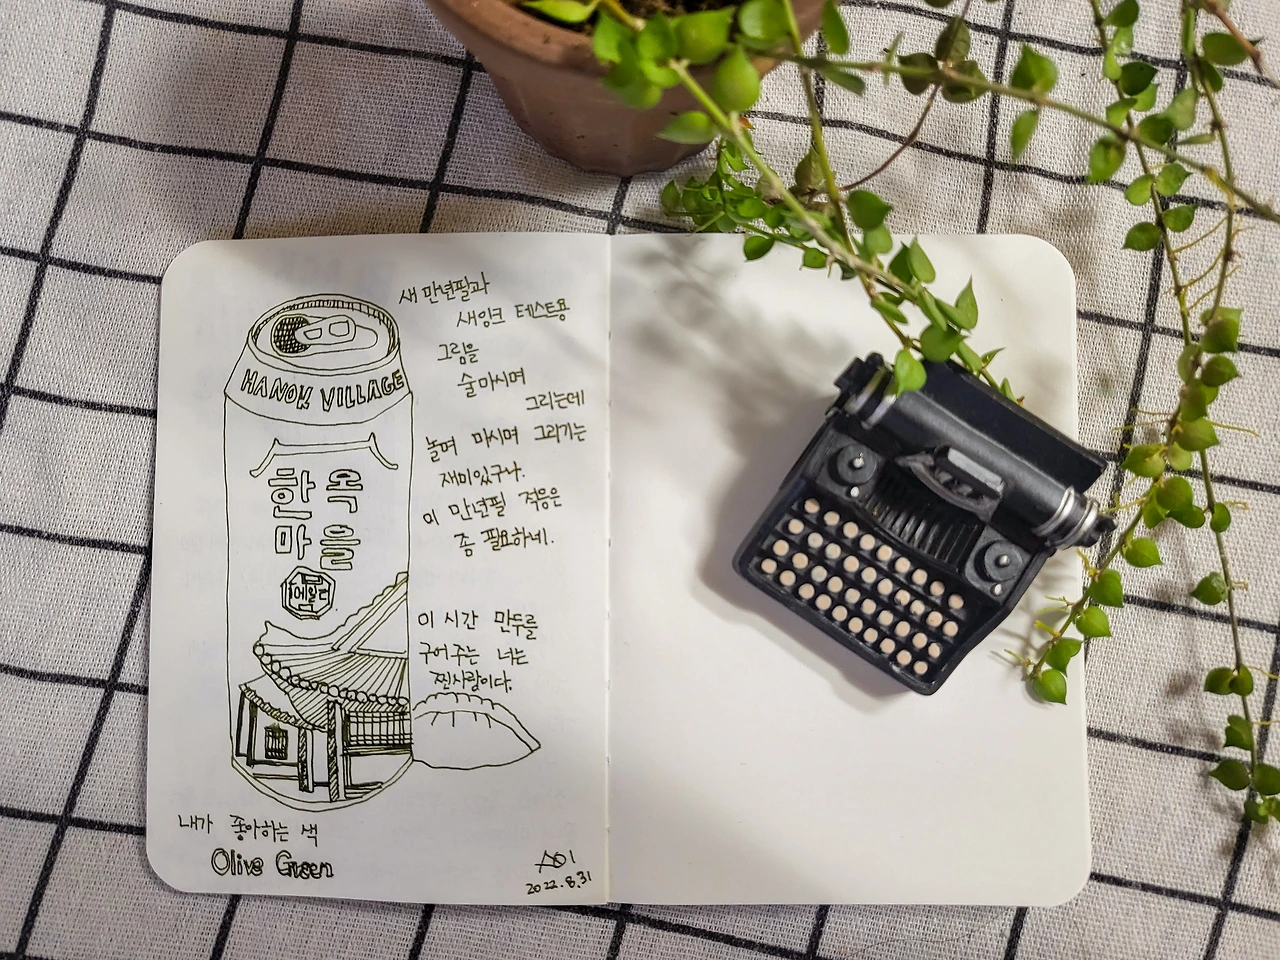 HANOK VILLAGE
한옥
마을
에일
새 만년필과
새잉크 테스트용
그림을
술마시며
그리는데
놀며 마시며 그리기는
재미있구나.
이 만년필 적응은
좀 필요하네.
이 시간 만두를
구어주는 너는
찐사랑이다.
내가 좋아하는 색
Olive Green
2022.8.31